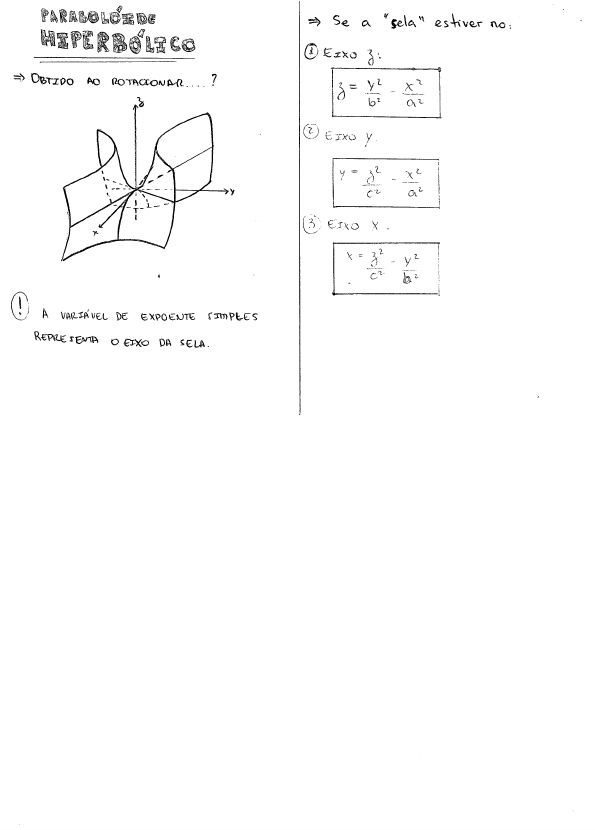 PARABOLÓIDE
HIPERBÓLICO
⇒ OBTIDO AO ROTACIONAR....?
z
y
x
! A VARIÁVEL DE EXPOENTE SIMPLES
REPRESENTA O EIXO DA SELA.
⇒ Se a "sela" estiver no:
① EIXO z:
z = y²/b² - x²/a²
② EIXO y.
y = z²/c² - x²/a²
③ EIXO x.
x = z²/c² - y²/b²